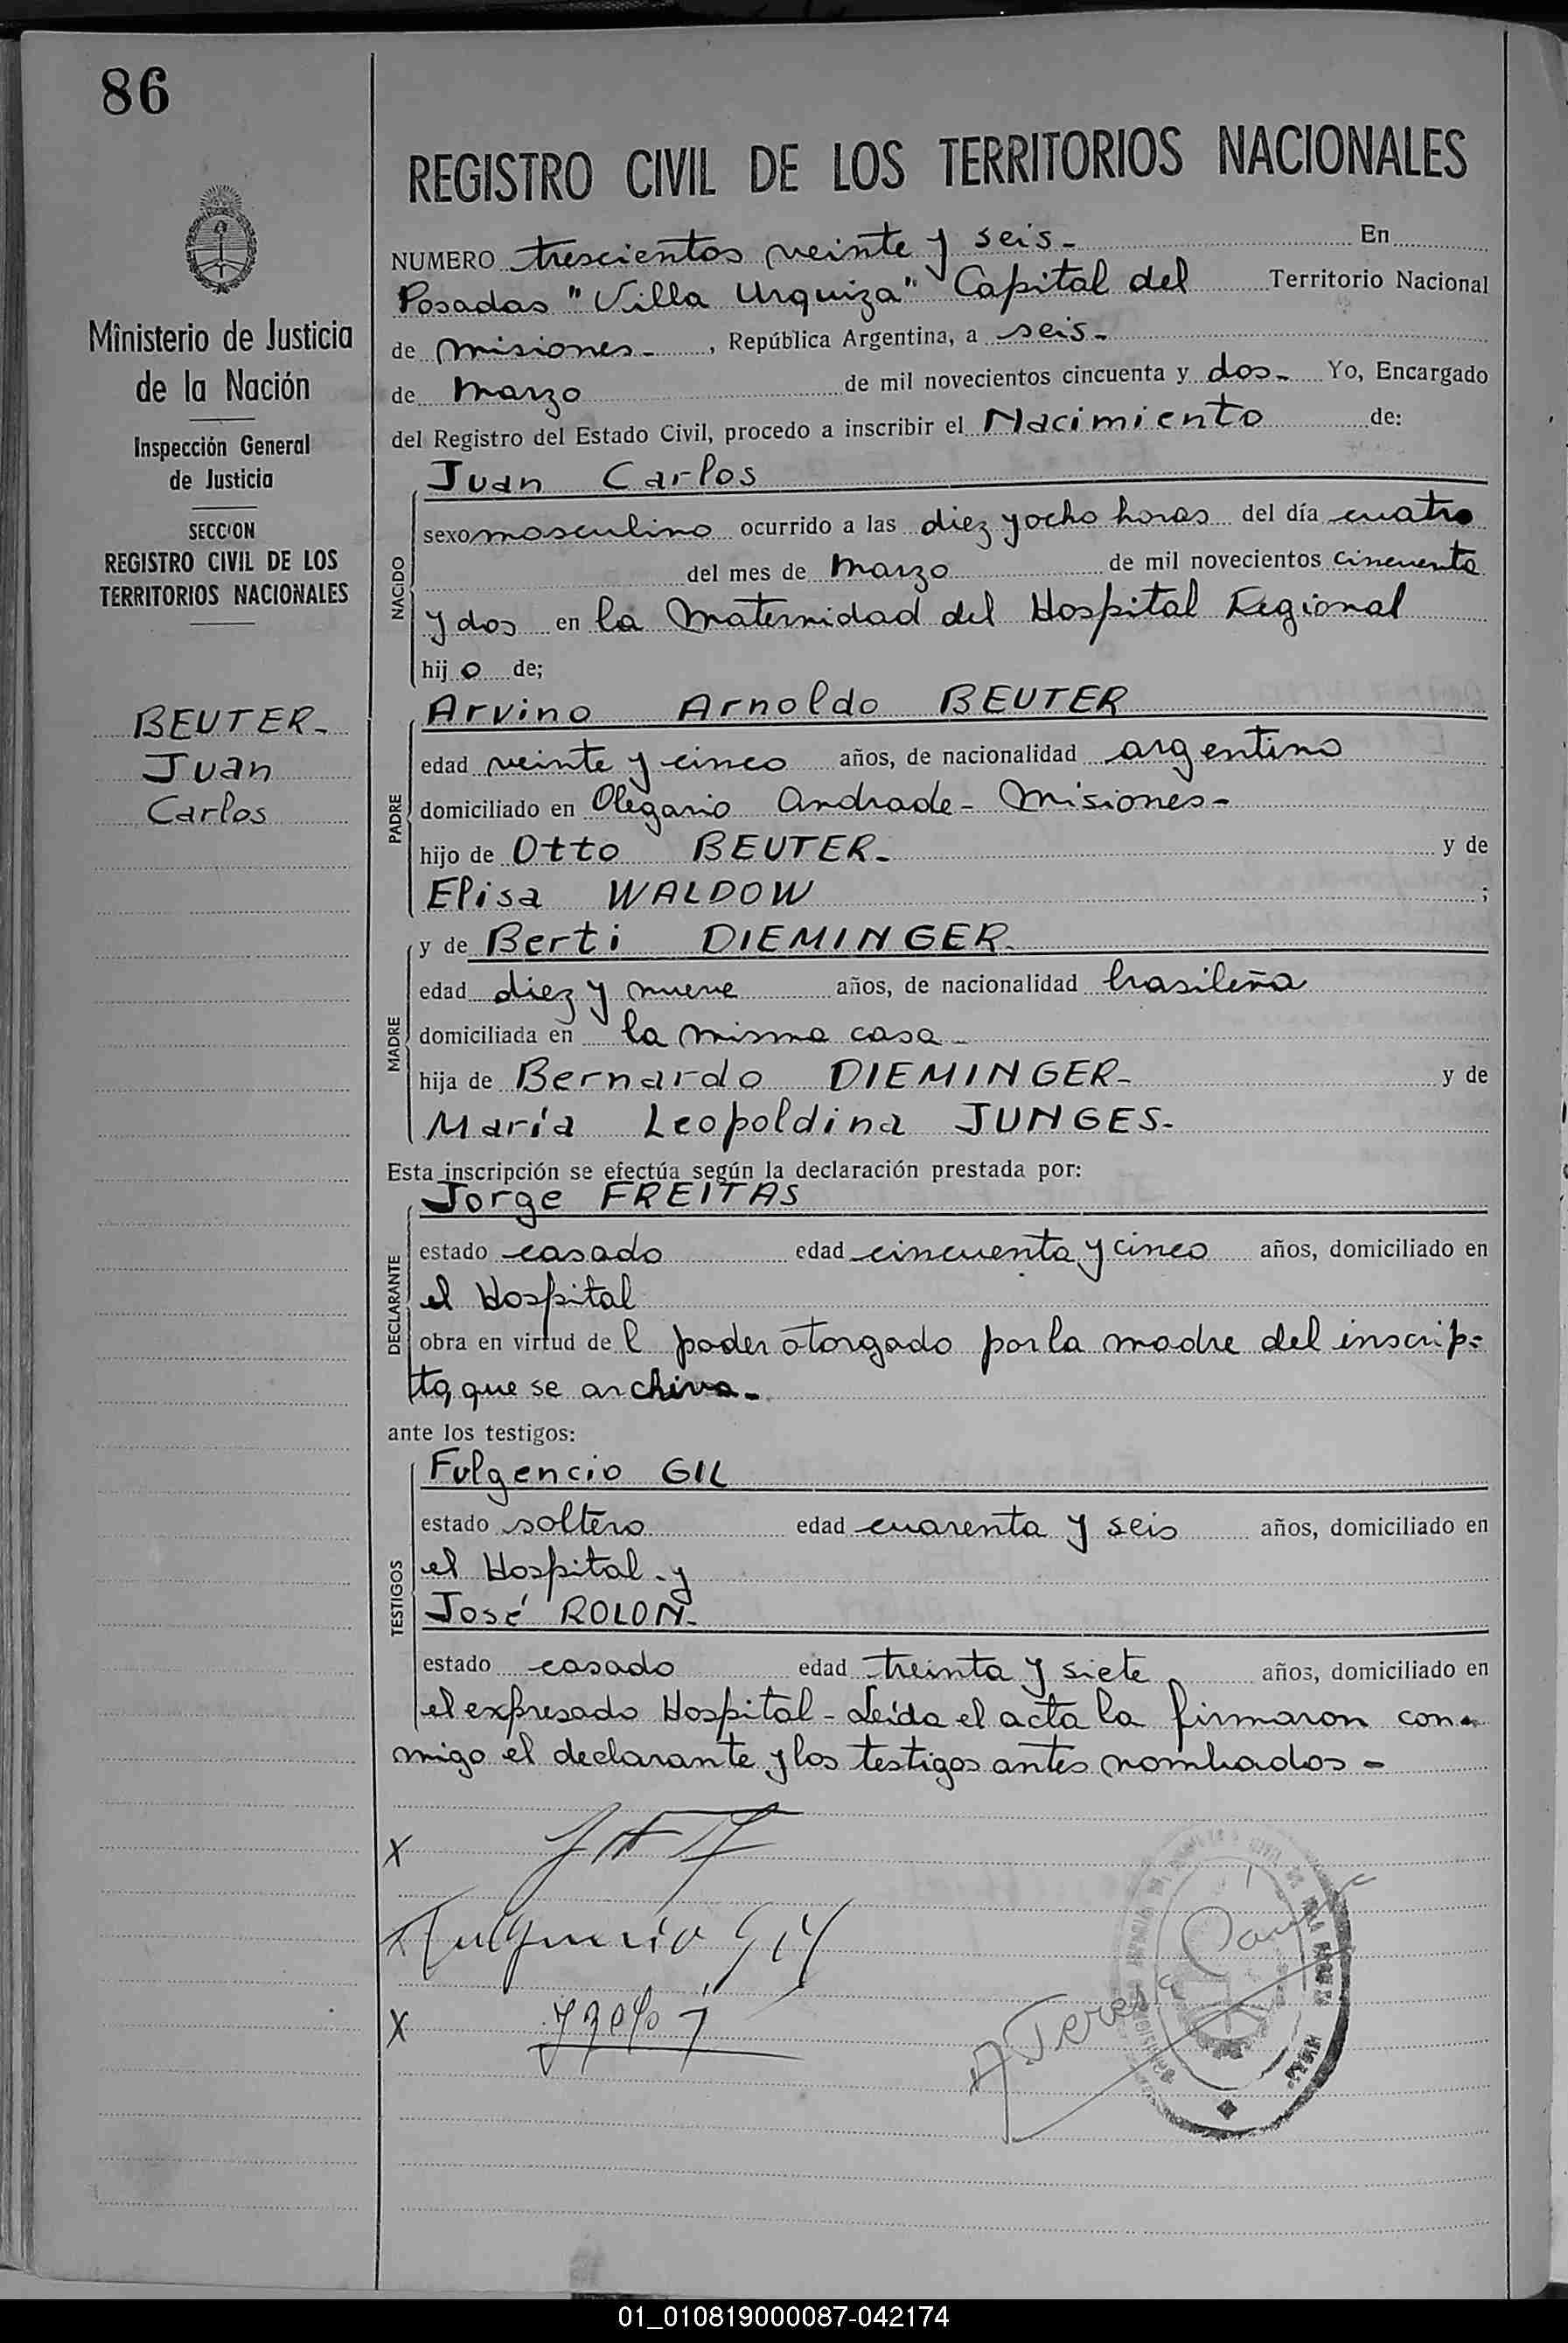 86
REGISTRO CIVIL DE LOS TERRITORIOS NACIONALES
Ministerio de Justicia
de la Nación
Inspección General
de Justicia
SECCION
REGISTRO CIVIL DE LOS
TERRITORIOS NACIONALES
BEUTER-
Juan
Carlos
NUMERO trescientos veinte y seis- En
Posadas "Villa Urquiza" Capital del Territorio Nacional
de Misiones-, República Argentina, a seis-
de Marzo de mil novecientos cincuenta y dos- Yo, Encargado
del Registro del Estado Civil, procedo a inscribir el Nacimiento de:
NACIDO
Juan Carlos
sexo masculino ocurrido a las diez y ocho horas del día cuatro
del mes de Marzo de mil novecientos cincuenta
y dos en la Maternidad del Hospital Regional
hijo de;
PADRE
Arvino Arnoldo BEUTER
edad veinte y cinco años, de nacionalidad argentino
domiciliado en Olegario Andrade- Misiones-
hijo de Otto BEUTER- y de
Elisa WALDOW ;
MADRE
y de Berti DIEMINGER-
edad diez y nueve años, de nacionalidad brasileña
domiciliada en la misma casa-
hija de Bernardo DIEMINGER- y de
María Leopoldina JUNGES-
Esta inscripción se efectúa según la declaración prestada por:
DECLARANTE
Jorge FREITAS
estado casado edad cincuenta y cinco años, domiciliado en
el Hospital
obra en virtud del poder otorgado por la madre del inscrip=
to, que se archiva-
ante los testigos:
TESTIGOS
Fulgencio GIL
estado soltero edad cuarenta y seis años, domiciliado en
el Hospital-y
José ROLON-
estado casado edad treinta y siete años, domiciliado en
el expresado Hospital- Leída el acta la firmaron con=
migo el declarante y los testigos antes nombrados-
X
X Fulgencio Gil
X
A Teresa
01_010819000087-042174